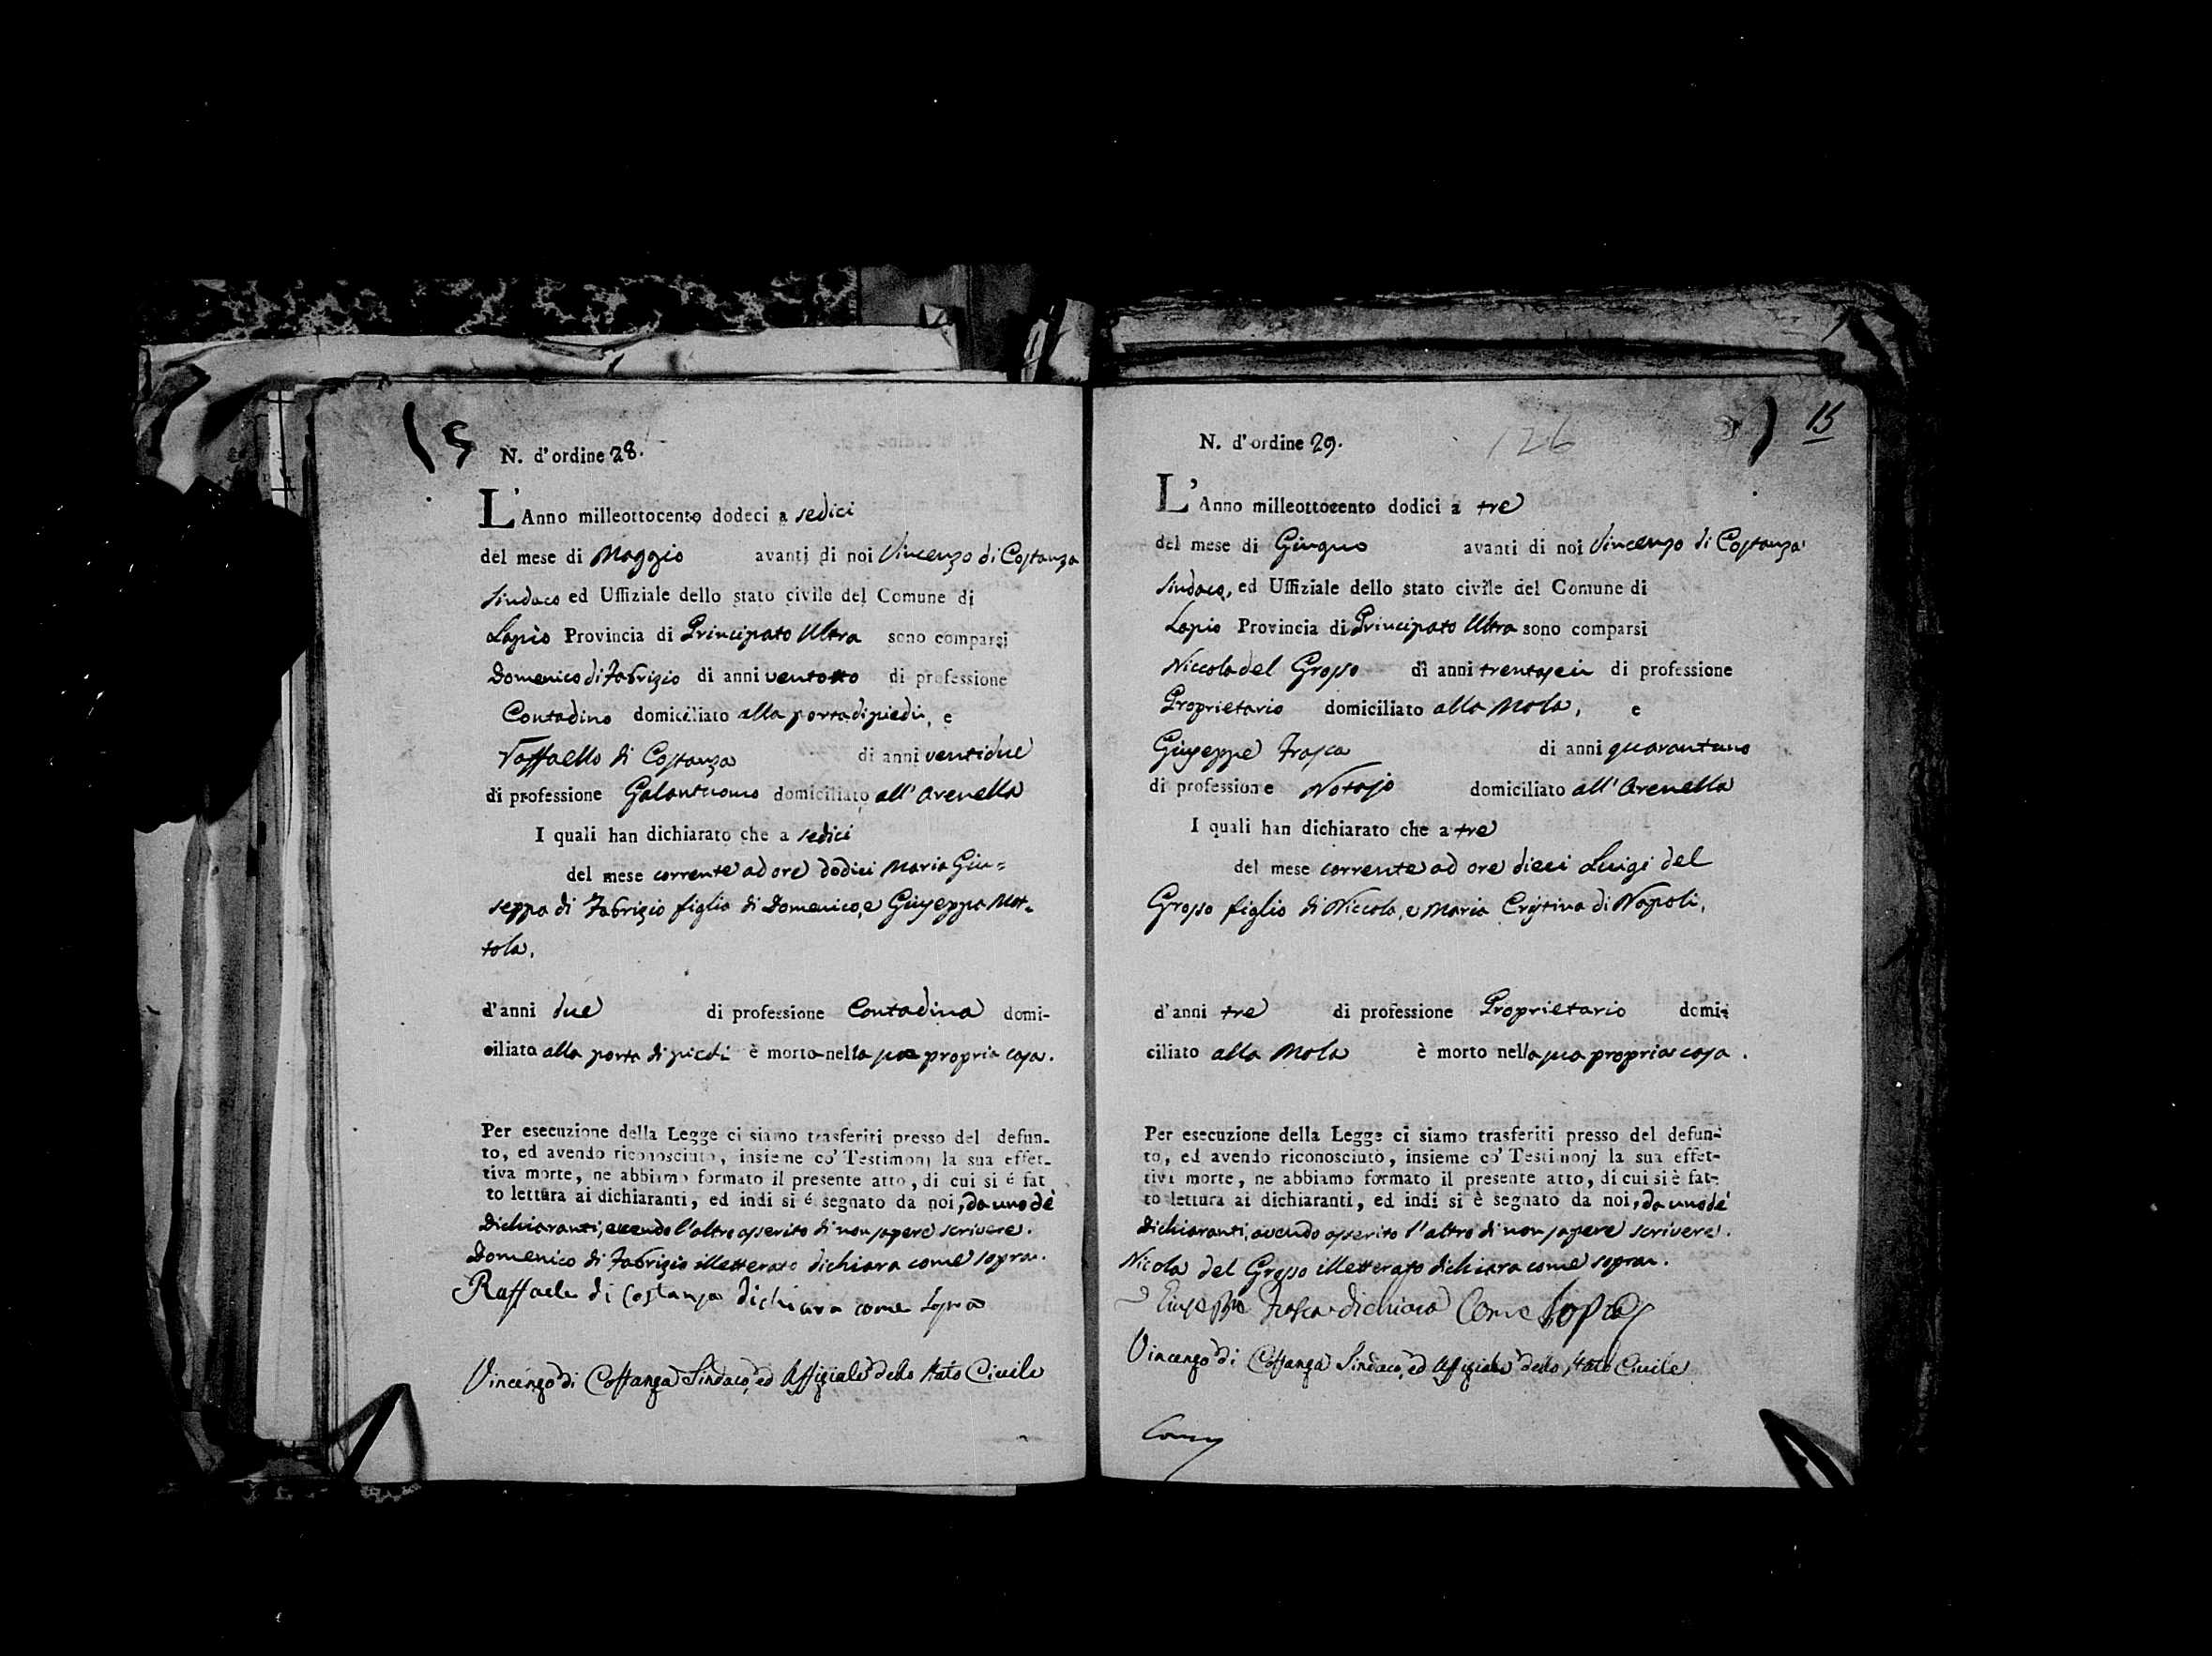 N. d'ordine 28.
L'Anno milleottocento dodeci a sedici
del mese di Maggio avanti di noi Vincenzo di Costanza
Sindaco ed Uffiziale dello stato civile del Comune di
Lapio Provincia di Principato Ultra sono comparsi
Domenico di Fabrizio di anni ventotto di professione
Contadino domiciliato alla porta di piedi, e
Raffaello di Costanza di anni ventidue
di professione Galantuomo domiciliato all' Arenella
I quali han dichiarato che a sedici
del mese corrente ad ore dodici Maria Giu=
seppa di Fabrizio figlia di Domenico, e Giuseppa Mot-
tola.
d'anni due di professione Contadina domi-
ciliata alla porta di piedi è morta nella sua propria casa.
Per esecuzione della Legge ci siamo trasferiti presso del defun-
to, ed avendo riconosciuto, insieme co' Testimonj la sua effet-
tiva morte, ne abbiamo formato il presente atto, di cui si é fat
to lettura ai dichiaranti, ed indi si é segnato da noi, da uno de'
dichiaranti, avendo l'altro asserito di non sapere scrivere.
Domenico di Fabrizio illetterato dichiara come sopra.
Raffaele di Costanza dichiara come sopra
Vincenzo di Costanza Sindaco, ed Uffiziale dello stato Civile
15
126
N. d'ordine 29.
L'Anno milleottocento dodici a tre
del mese di Giugno avanti di noi Vincenzo di Costanza
Sindaco, ed Uffiziale dello stato civile del Comune di
Lapio Provincia di Principato Ultra sono comparsi
Niccola del Grosso di anni trentasei di professione
Proprietario domiciliato alla Mola, e
Giuseppe Frasca di anni quarantuno
di professione Notajo domiciliato all' Arenella
I quali han dichiarato che a tre
del mese corrente ad ore dieci Luigi del
Grosso figlio di Niccola, e Maria Cristina di Napoli.
d'anni tre di professione Proprietario domi-
ciliato alla Mola è morto nella sua propria casa.
Per esecuzione della Legge ci siamo trasferiti presso del defun-
to, ed avendo riconosciuto, insieme co' Testimonj la sua effet-
tiva morte, ne abbiamo formato il presente atto, di cui si è fat-
to lettura ai dichiaranti, ed indi si è segnato da noi, da uno de'
dichiaranti, avendo asserito l'altro di non sapere scrivere.
Nicola del Grosso illetterato dichiara come sopra.
Giuseppe Frasca dichiara come sopra
Vincenzo di Costanza Sindaco, ed Uffiziale dello stato Civile